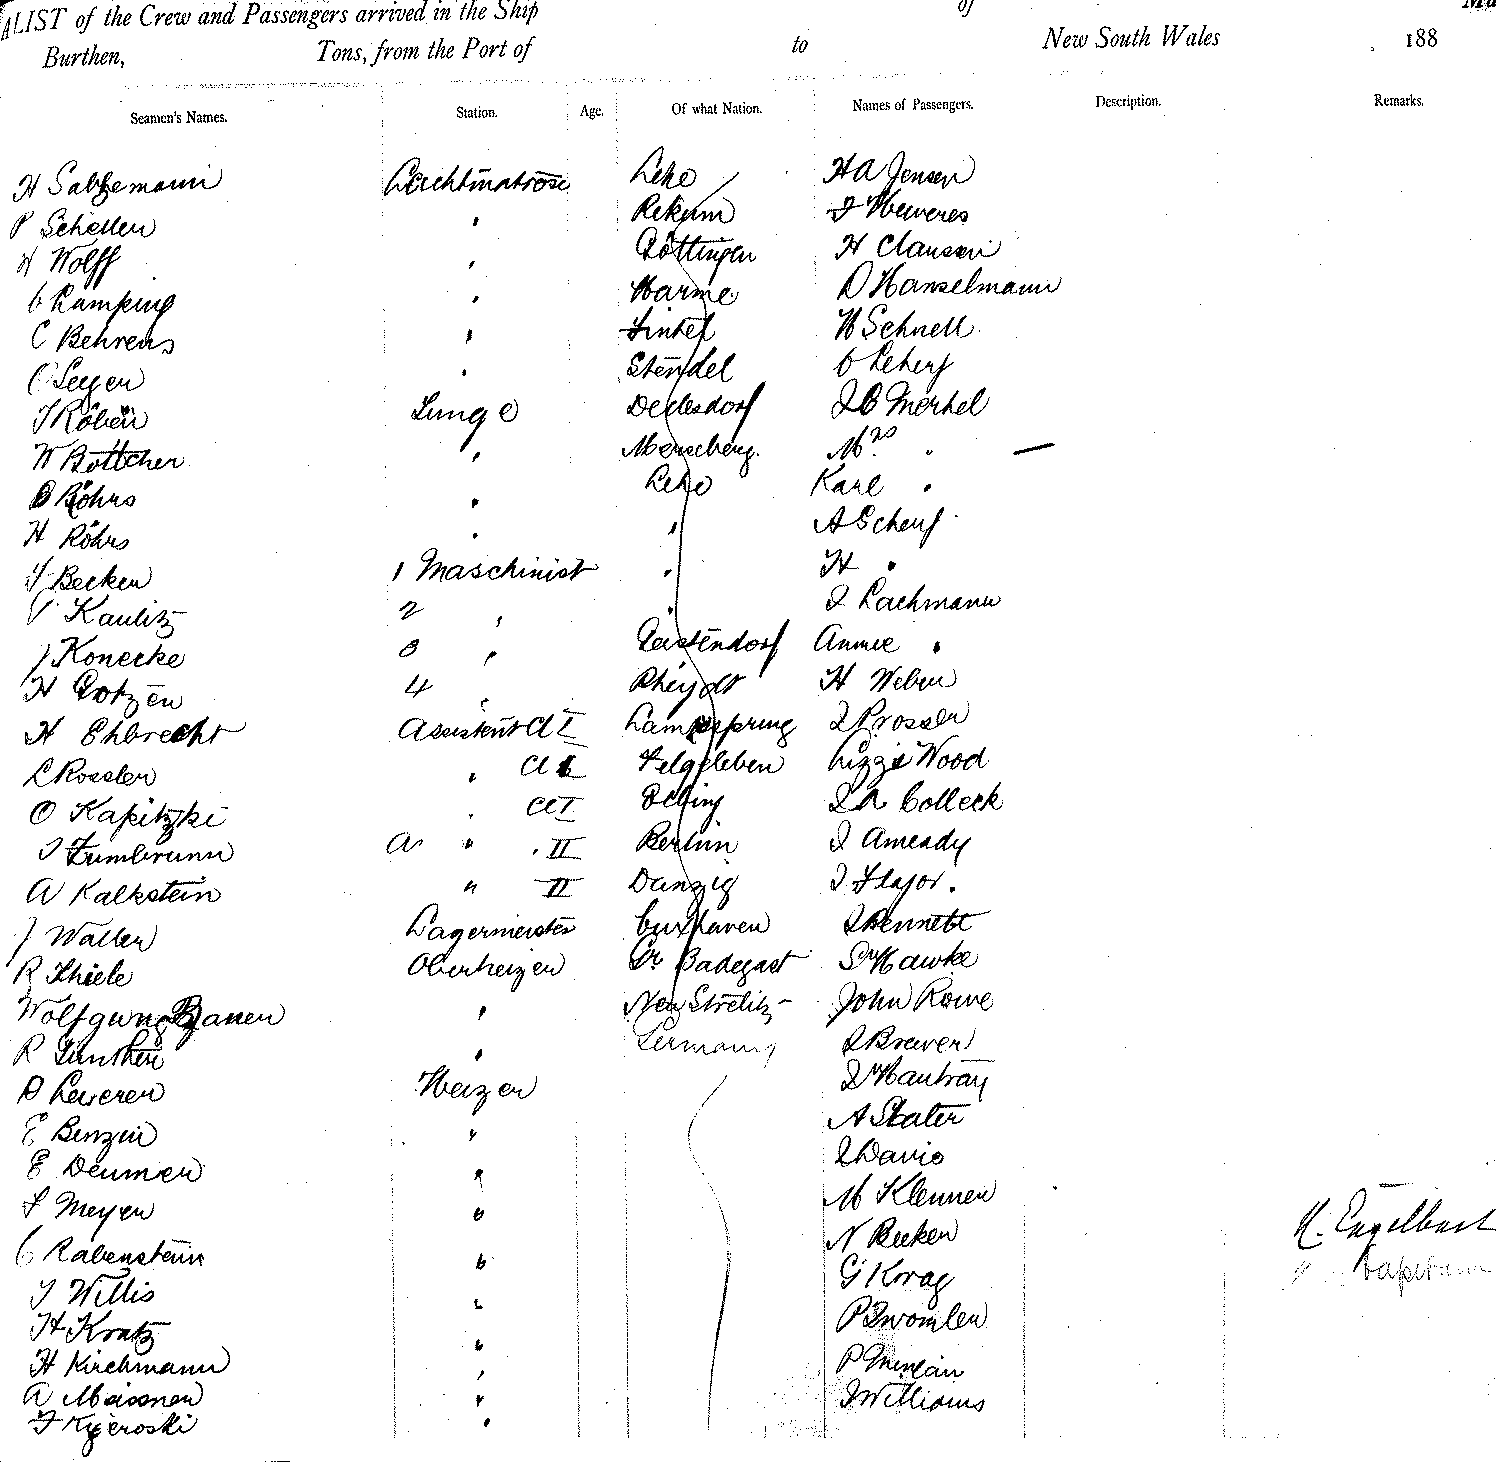 A LIST of the Crew and Passengers arrived in the Ship of
Burthen, Tons, from the Port of to New South Wales 188
Seamen's Names. Station. Age. Of what Nation. Names of Passengers. Description. Remarks.
Leichtmatrose Lehe H A Jensen
P Schellen " Rekum J Heweres
H Wolff " Göttingen H Clausen
C Kamping " D Hanselmann
C Behrens " Lintel H Schnell
" Stendel
J Röben Junge Dedesdorf J C Merkel
W Böttcher " Merseberg Mrs "
D Röhrs " Lehe Karl "
H Röhrs " " A Scherf
J Becken 1 Maschinist " H "
Kaulitz 2 " " J Lachmann
J Konecke 3 " Annie "
H Gotzen 4 " Rheydt H Weber
H Ehbrecht Assistent Cl I Lamspring J Prosser
L Rossler " Cl I Felgeleben Lizzie Wood
O Kapitzki " Cl I Elbing J R Colleck
J Zumbrunn A " " II Berlin J Ameady
A Kalkstein " II Danzig J Flajor.
J Walter Lagermeister Cuxhaven J Bennett
R Thiele Oberheizer Gr Badegast S Hawke
Wolfgang " Neu Strelitz John Rowe
R Günther " Germany J Brewer
D Leverer Heizer
E Benzin " A Slater
E Deumer " J Davis
F Meyer " M Klemmer
C Rabenstein " N Becker
J Willis " G Korag
H Kratz "
H Kirchmann "
A Meissner " J Williams
F Kijeroski "
H. Engelbart
Capitain